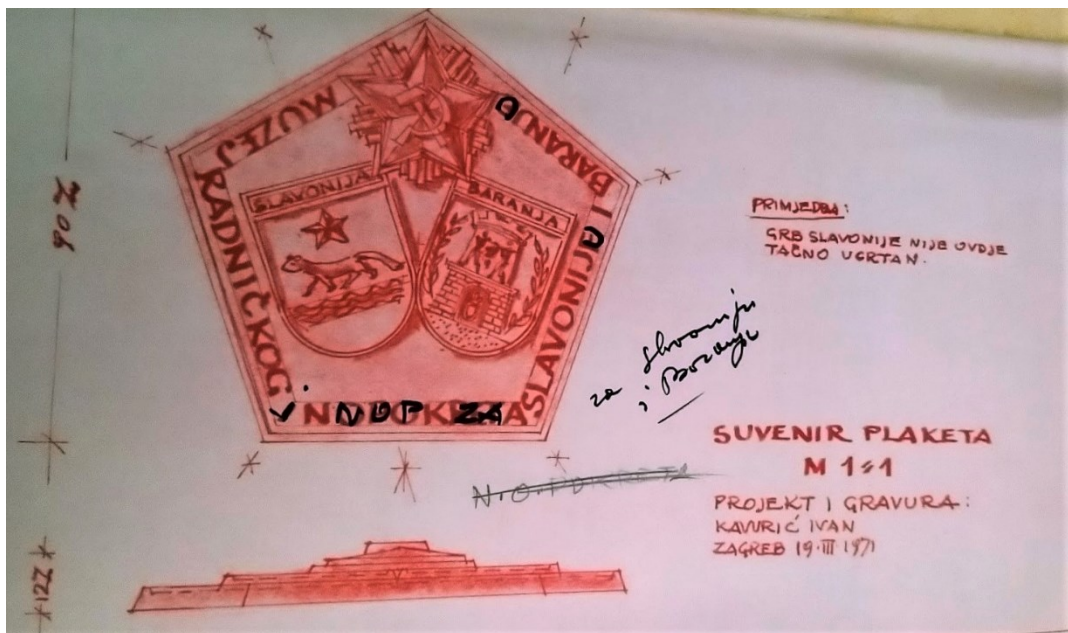 MUZEJ
RADNIČKOG
i NOP ZA
SLAVONIJU I
BARANJU
SLAVONIJA
BARANJA
PRIMJEDBA:
GRB SLAVONIJE NIJE OVDJE
TAČNO UCRTAN.
za Slavoniju
i Baranju
N.O.POKRETA
SUVENIR PLAKETA
M 1:1
PROJEKT I GRAVURA:
IVAN
ZAGREB 19·III·1971